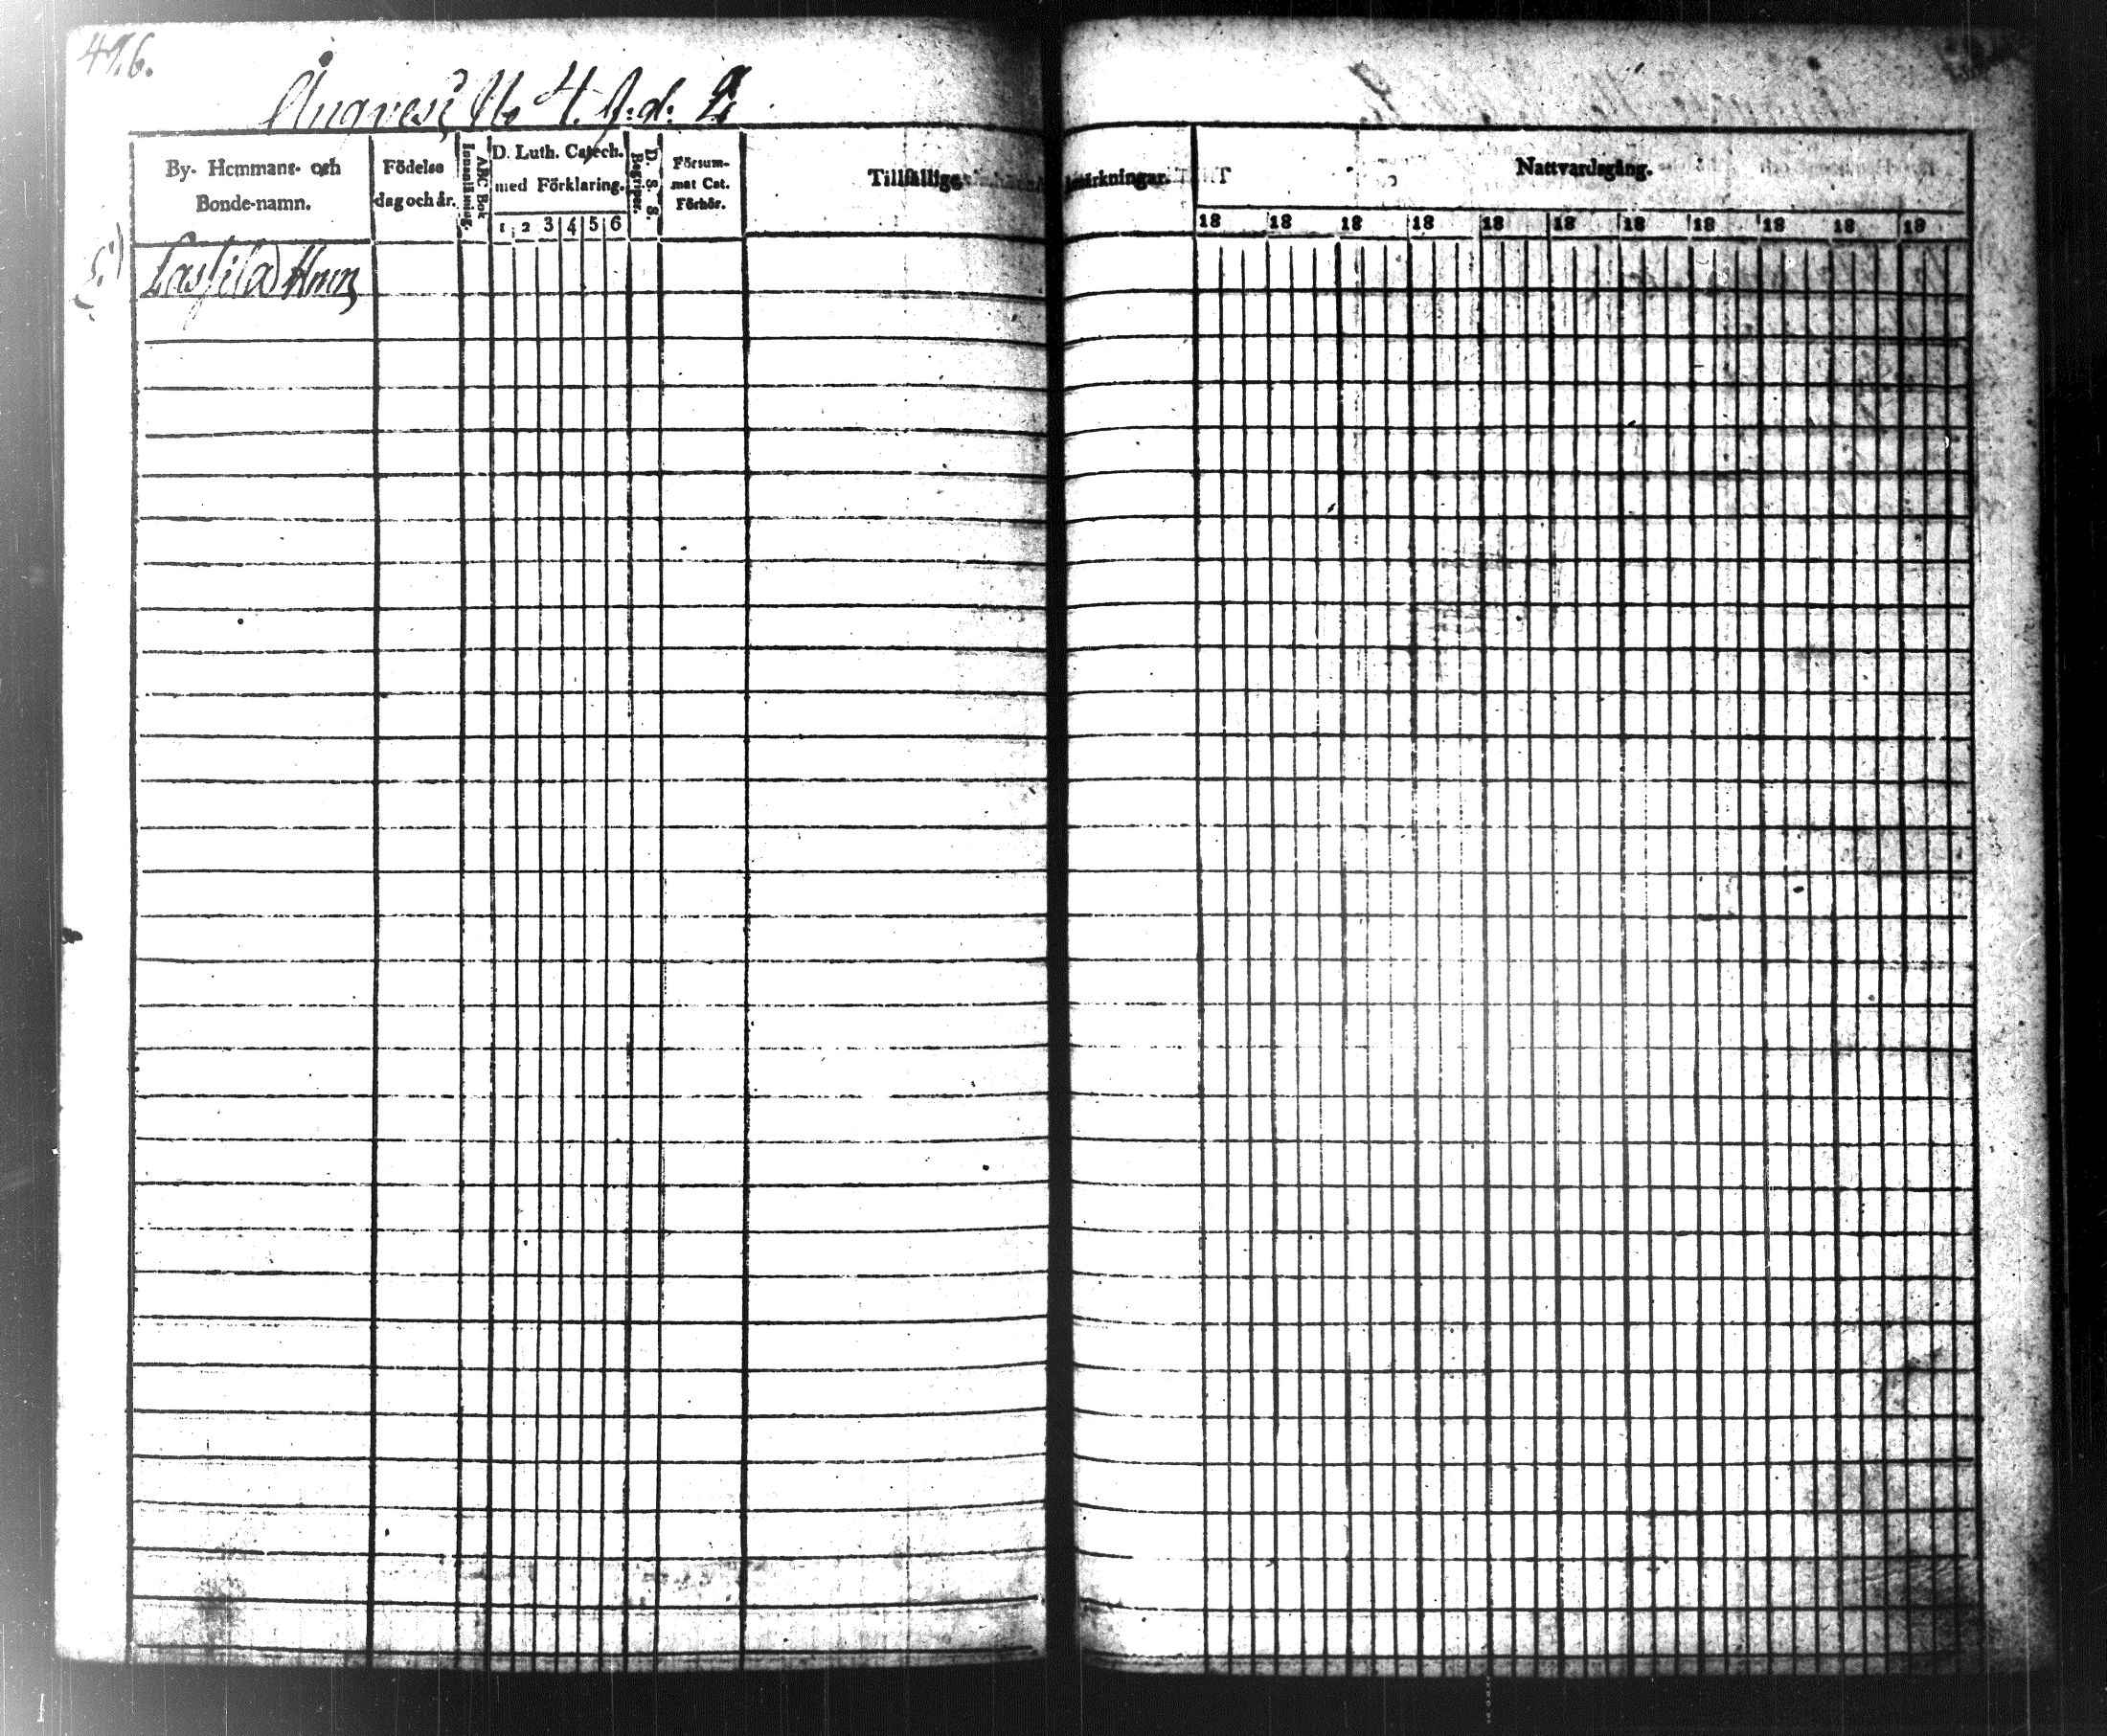 476.
Ångvesi No 4. f.d. 2
By- Hemmans- och
Bonde-namn.
Födelse
dag och år.
ABC Bok
Innanläsning.
D. Luth. Catech.
med Förklaring.
1 2 3 4 5 6
D. S. S.
Begriper.
Försum-
mat Cat.
Förhör.
Tillfällige Anmärkningar.
Nattvardsgång.
18 18 18 18 18 18 18 18 18 18 18
Lassila Hmn